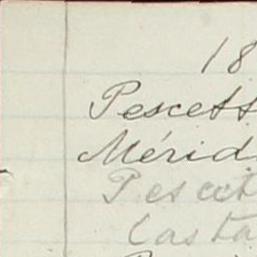 18
Pescett
Mérid
Pescet
Casta